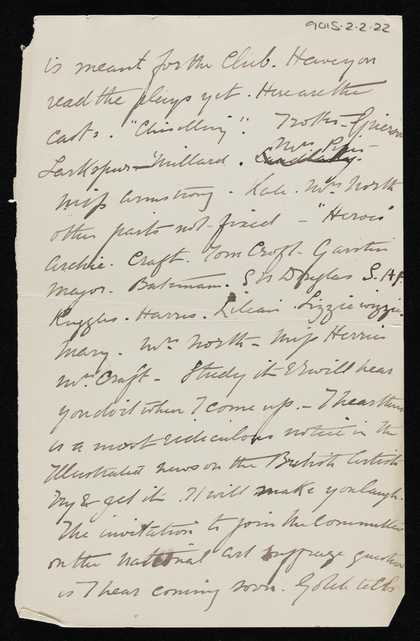 9015-2-2-22
is meant for the Club. Have you
read the plays yet. Here are the
casts. "Chiselling". Trotter -
Larkspur - Millard.
Miss Armstrong. Kate. Mrs North
other parts not fixed - "Heroes"
Archie. Craft. Tom Croft - Garstin
Major. Bateman. Douglas
Ruggles. Harris. Lilian. Lizzie
Mary. Mrs North - Miss Herries
Mrs Craft - Study it & I will hear
you do it when I come up. - I hear there
is a most ridiculous notice in the
Illustrated News on the British Artists
Try & get it. It will make you laugh.
The invitation to join the Committee
on the national art suffrage question
is I hear coming soon. Gotch tells